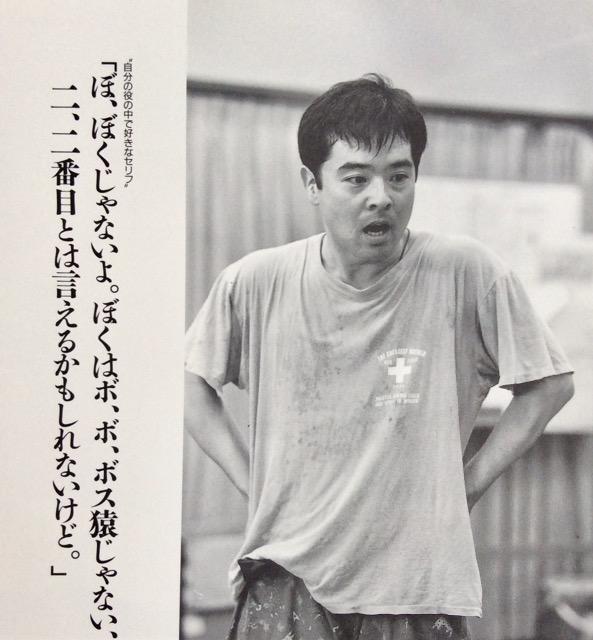 〝自分の役の中で好きなセリフ〟
「ぼ、ぼくじゃないよ。ぼくはボ、ボ、ボス猿じゃない、
二、二番目とは言えるかもしれないけど。」